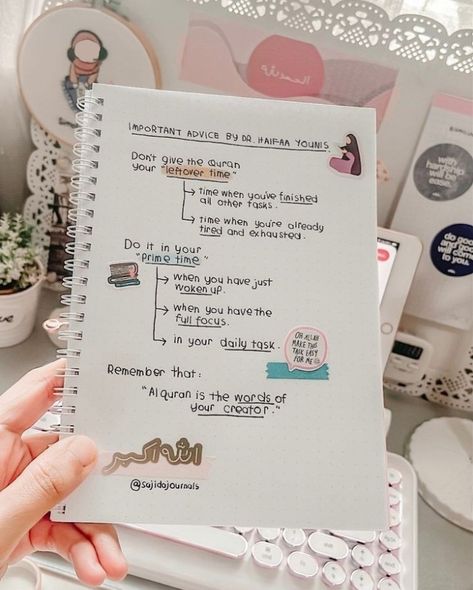 الحمدلله
IMPORTANT ADVICE BY DR. HAIFAA YOUNIS.
Don't give the Quran
your "leftover time"
time when you've finished
all other tasks.
time when you're already
tired and exhausted.
Do it in your
"prime time"
when you have just
woken up.
when you have the
full focus.
in your daily task.
OH ALLAH
MAKE THIS
TASK EASY
FOR ME
Remember that:
"Al quran is the words of
your creator."
الله أكبر
@sajidajournals
with
hardship
will be
ease.
do good
and good
will come
to you.